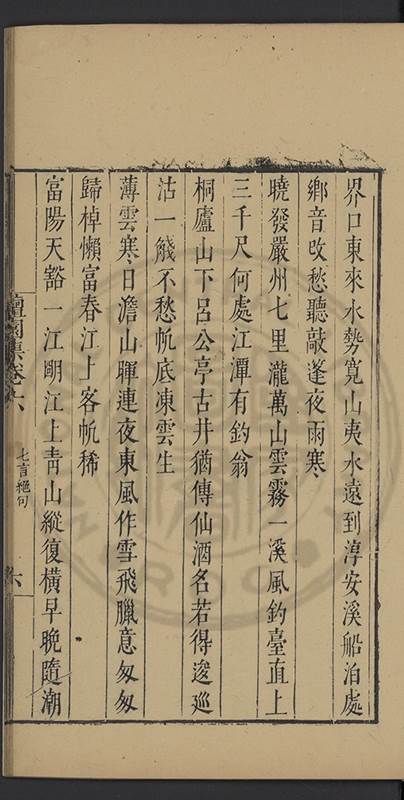 界口東來水勢寬山夷水遠到淳安溪船泊處
鄉音改愁聽敲蓬夜雨寒
曉發嚴州七里瀧萬山雲霧一溪風釣臺直上
三千尺何處江潭有釣翁
桐廬山下呂公亭古井猶傳仙酒名若得逡巡
沽一觴不愁帆底凍雲生
薄雲寒日澹山暉連夜東風作雪飛臘意匆匆
歸棹懶富春江上客帆稀
富陽天豁一江明江上青山縱復橫早晚隨潮
園集卷六
七言絕句
六